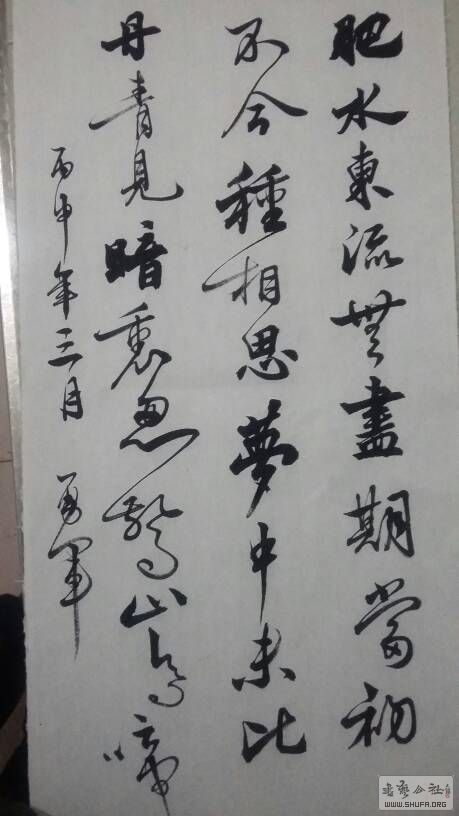 肥水東流無盡期當初
不合種相思夢中未比
丹青見暗裏忽驚山鳥啼
丙申年三月 勇軍
書藝公社
WWW.SHUFA.ORG